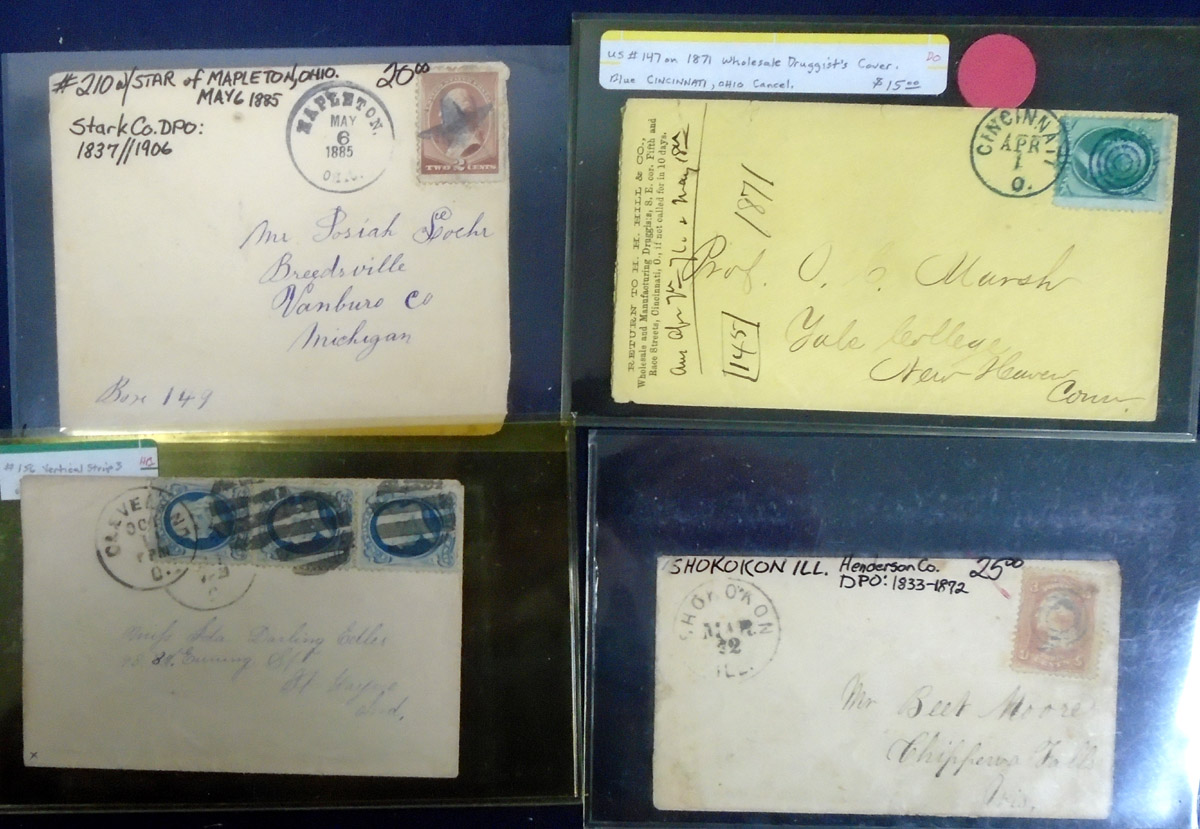 #210 w/STAR of MAPLETON, OHIO. 25⁰⁰
MAY 6 1885
Stark Co. DPO:
1837//1906
MAPLETON.
MAY
6
1885
TWO 2 CENTS
Mr Josiah
Breedsville
Vanburo Co
Michigan
Box 149
US #147 on 1871 Wholesale Druggist's Cover. DO
Blue CINCINNATI, OHIO Cancel. $15.00
CINCINNATI
APR
1
O.
RETURN TO H. H. HILL & CO.,
Wholesale and Manufacturing Druggists, S. E. cor. Fifth and
Race Streets, Cincinnati, O., if not called for in 10 days.
1871
145
Prof. O. C. Marsh
Yale College
New Haven
Conn.
#156 Vertical Strip 3
CLEVELAND
OC
O.
Miss Ida Darling
St
Ft Wayne
Ind.
x
SHOKOKON ILL. Henderson Co. 25⁰⁰
DPO: 1833-1872
SHOKOKON
MAR
ILL.
Mr Bert Moore
Chippewa Falls
Wis.